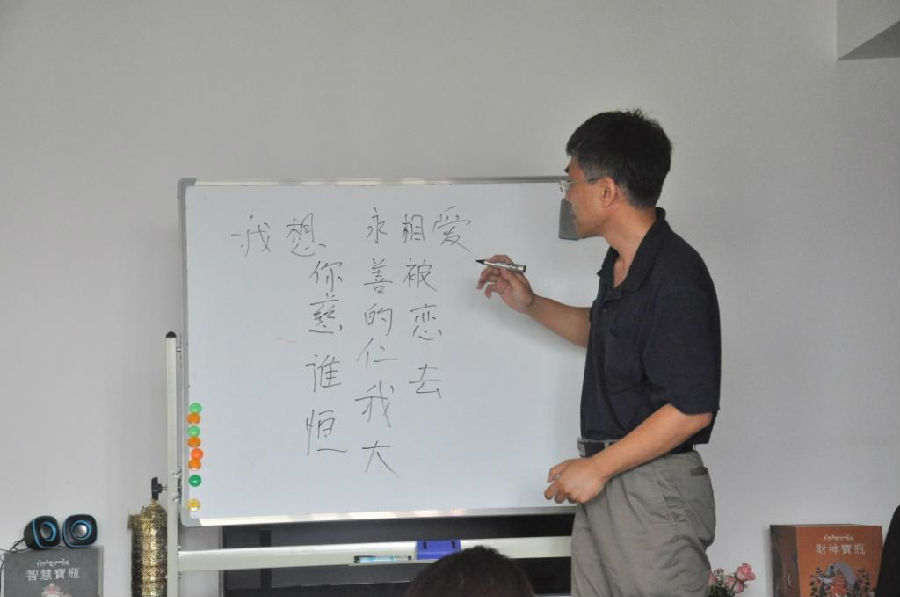 我
想
你慈谁恒
永善的仁我大
相被恋去
爱
智慧寶瓶
財神寶瓶